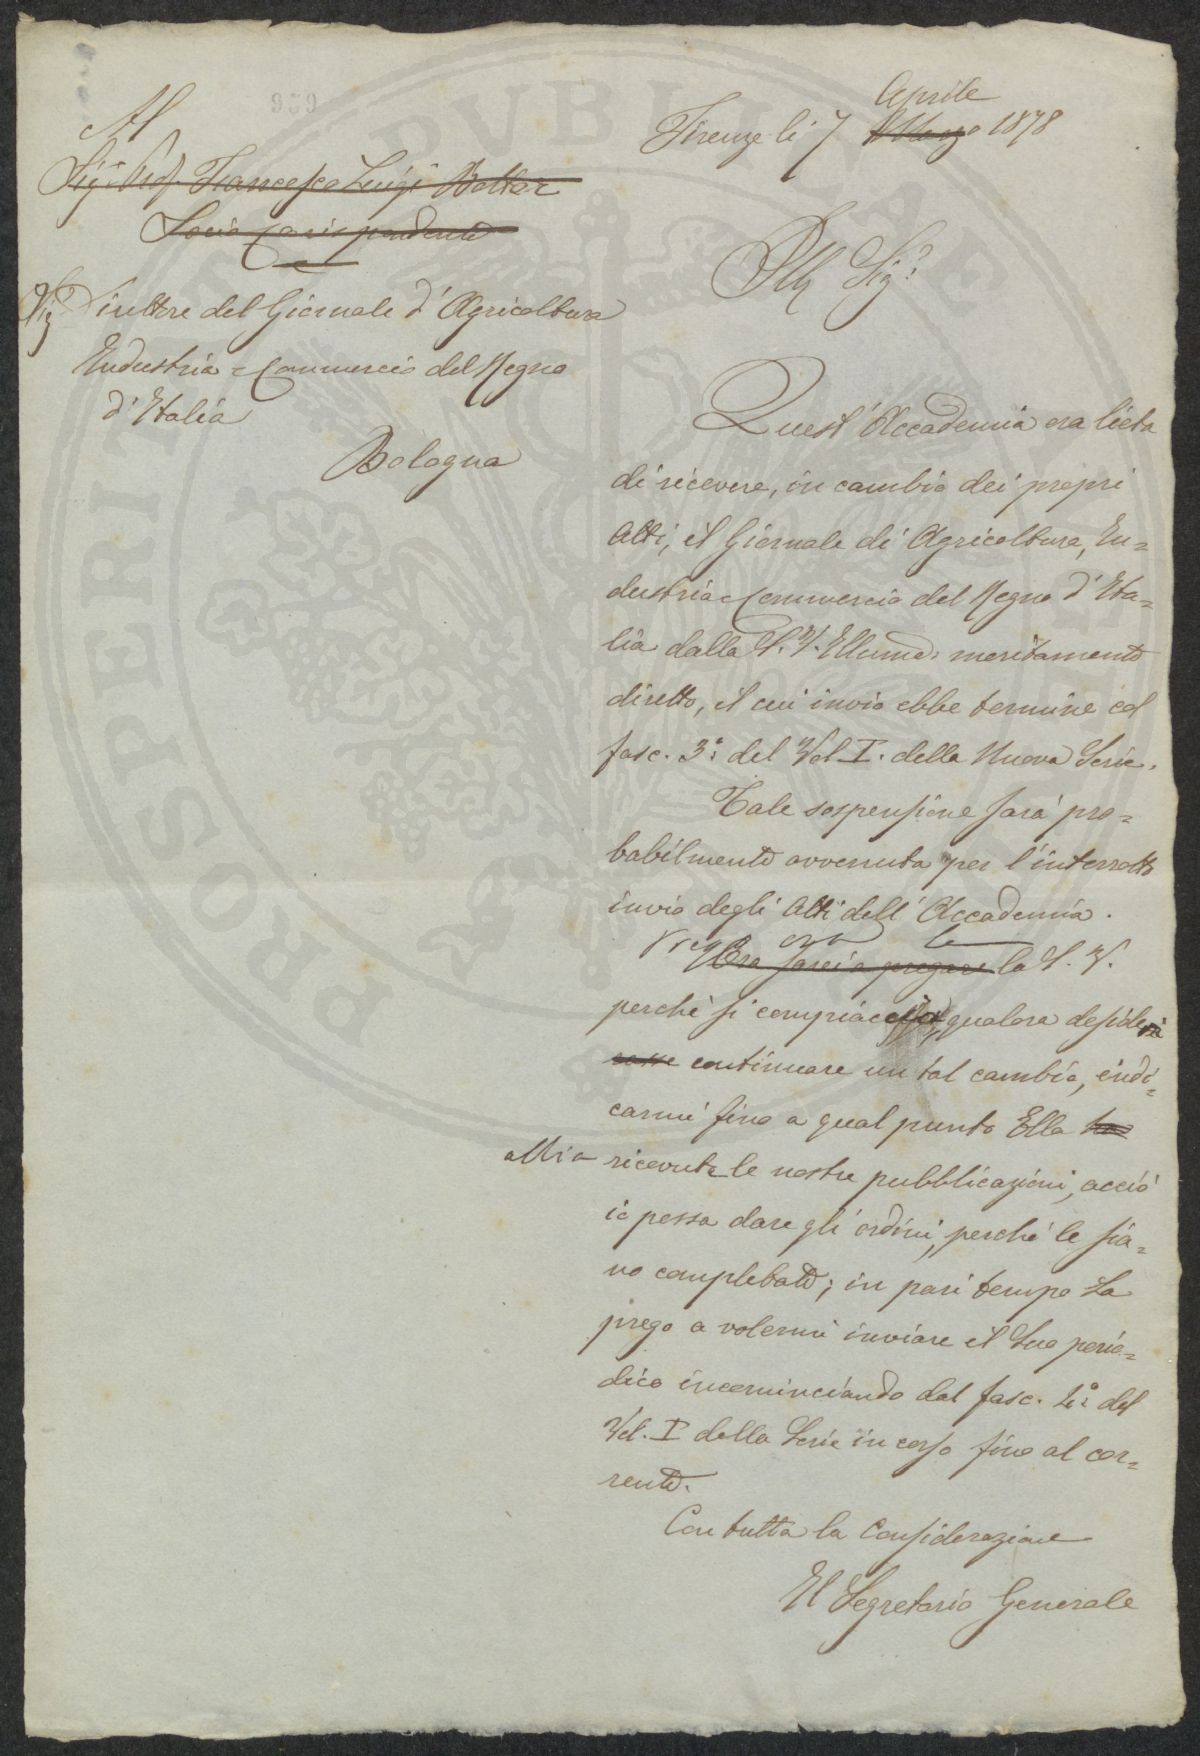 959
Firenze li 7 Marzo Aprile 1878
Al
Sig. Prof. Francesco Luigi Botter
Socio Corrispondente
Sig. Direttore del Giornale d'Agricoltura
Industria e Commercio del Regno
d'Italia
Bologna
Ill. Sig.
Quest'Accademia era lieta
di ricevere, in cambio dei propri
Atti, il Giornale di Agricoltura, In=
dustria e Commercio del Regno d'Ita=
lia dalla S. V. Illuma. meritamente
diretto, il cui invio ebbe termine col
fasc. 3.° del Vol I. della Nuova Serie.
Tale sospensione sarà pro=
babilmente avvenuta per l'interrotto
invio degli Atti dell'Accademia.
Prego ora
Ora sarei a pregare la S. V.
perchè si compiaccia, qualora desideri
rasse continuare un tal cambio, indi=
carmi fino a qual punto Ella ha
abbia ricevute le nostre pubblicazioni, acciò
io possa dare gli ordini, perchè le sia=
no completate; in pari tempo La
prego a volermi inviare il Suo perio=
dico incominciando dal fasc. 4.° del
Vol. I della Serie in corso fino al cor=
rente.
Con tutta la Considerazione
Il Segretario Generale
PVBLICAE
PROSPERITATI